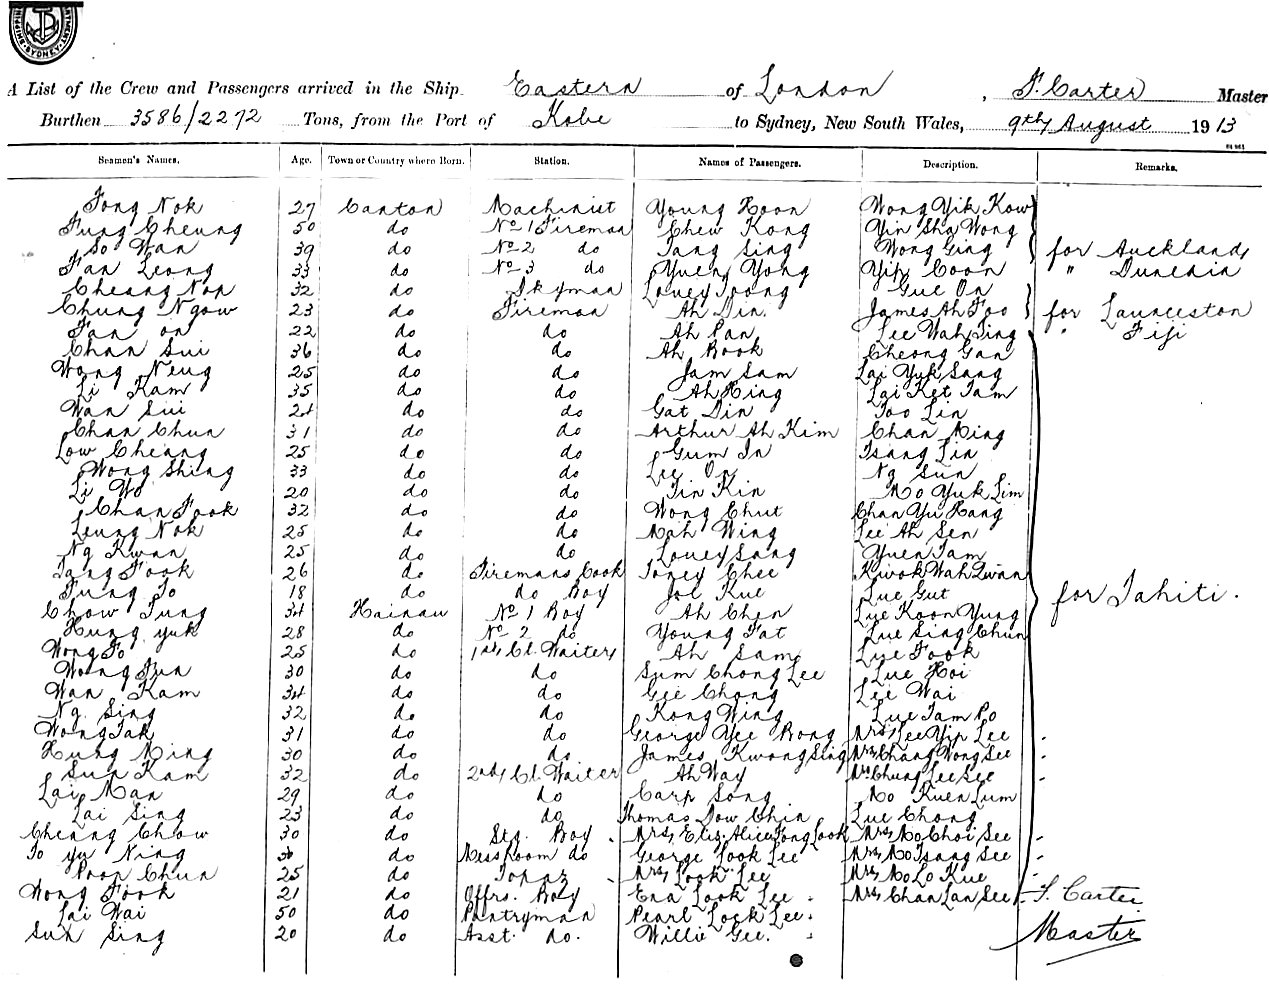 SHIPPING
SYDNEY
A List of the Crew and Passengers arrived in the Ship Eastern of London, F. Carter Master
Burthen 3586/2272 Tons, from the Port of Kobe to Sydney, New South Wales, 9th August 1913
Seamen's Names. Age. Town or Country where Born. Station. Names of Passengers. Description. Remarks.
Fong Nok 27 Canton Machinist Young Hoon Wong Yik Kow
Fung Cheung 50 do No 1 Fireman Chew Kong Yin Sha Wong
So Wan 39 do No 2 do Tang Sing Wong Ging for Auckland
Fan Leong 33 do No 3 do Yueng Yong Yip Coon " Dunedin
Cheang Non 32 do Skyman Louey Toong Gue On
Chung Ngow 23 do Fireman Ah Din. James Ah Foo for Launceston
Fan on 22 do do Ah Pan Lee Wah Sing " Fiji
Chan Sui 36 do do Ah Book Cheong Gan
Wong Neng 25 do do Jam Sam Lai Yuk Sang
Li Kam 35 do do Ah Hing Lai Ket Tam
Wan Sui 24 do do Gat Din Foo Lin
Chan Chun 31 do do Arthur Ah Kim Chan Ning
Low Cheang 25 do do Gum In Tsang Lin
Wong Shing 33 do do Lee On Ng Sun
Li Wo 20 do do Tin Kin Mo Yuk Lim
Chan Fook 32 do do Wong Chut Chan Yu Hang
Leung Nok 25 do do Mah Wing Lee Ah Sen
Ng Kwan 25 do do Louey Sang Yuen Tam
Tang Fook 26 do Firemans Cook Toney Chee Kwok Wah Qwan
Fung To 18 do do Boy Joe Kue Lue Gut for Tahiti.
Chow Fung 34 Hainan No 1 Boy Ah Chen Lye Koon Yung
Hung yuk 28 do No 2 do Young Fat Lue Sing Chun
Wong Fo 25 do 1st Cl. Waiters Ah Sam Lye Fook
Wong Fun 30 do do Sum Chong Lee Lue Hoi
Wan Kam 34 do do Gee Chong Lee Wai
Ng Sing 32 do do Kong Wing Lue Tam Po
Wong Tak 31 do do George Yee Bong Mrs Lee Yip Lee
Hung Ming 30 do do James Kwong Sing Mrs Chang Wong See
Sun Kam 32 do 2nd Cl. Waiter Ah Way Mrs Chung Lee See
Lai Man 29 do do Carp Song Mo Kuen Lum
Lai Sing 23 do do Thomas Dow Chin Lue Chong
Cheang Chow 30 do Stg. Boy Mrs Eliz. Alice Fong Look Mrs Mo Choi See
To Yu Ning do Messroom do George Look Lee Mrs Mo Tsang See
Poon Chun 25 do Topaz Mrs Look Lee Mrs Mo Lo Kue
Wong Fook 21 do Offrs. Boy Ena Look Lee Mrs Chan Lan See F. Carter
Lai Wai 50 do Pantryman Pearl Lock Lee Master
Sun Sing 20 do Asst. do. Willie Gee.